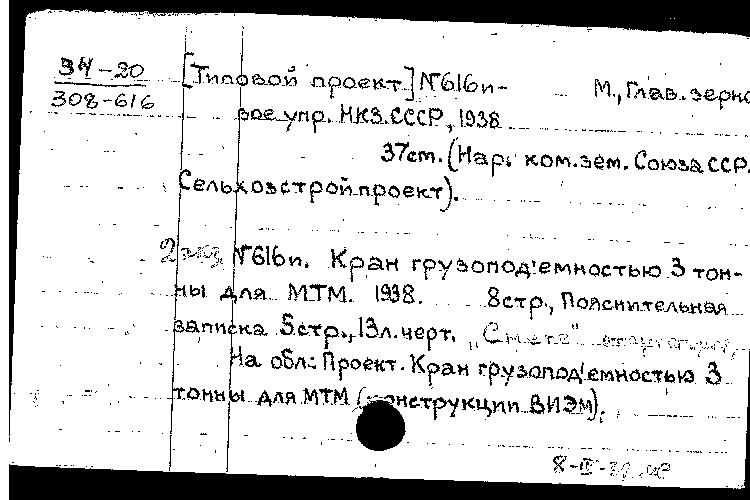 34-20
308-616
[Типовой проект] №616п- М., Глав. зерно
вое упр. НКЗ.СССР, 1938
37ст. (Нар. ком. зем. Союза ССР.
Сельхозстройпроект).
2 экз №616п. Кран грузопод'емностью 3 тон-
ны для МТМ. 1938. 8стр., Пояснительная
записка 5стр., 13л. черт. „Смета"
На обл: Проект. Кран грузопод'емностью 3
тонны для МТМ (конструкции ВИЭМ).